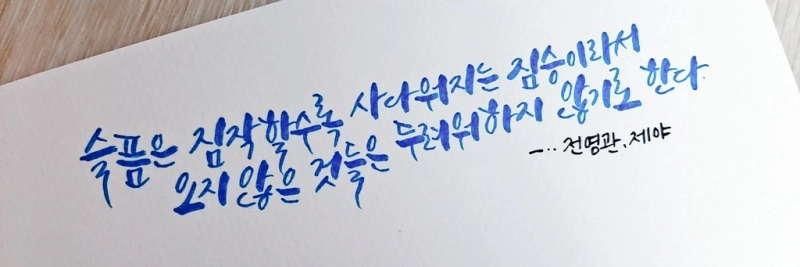 슬픔은 짐작할수록 사나워지는 짐승이라서
오지 않은 것들은 두려워하지 않기로 한다.
-·· 전영관, 제야